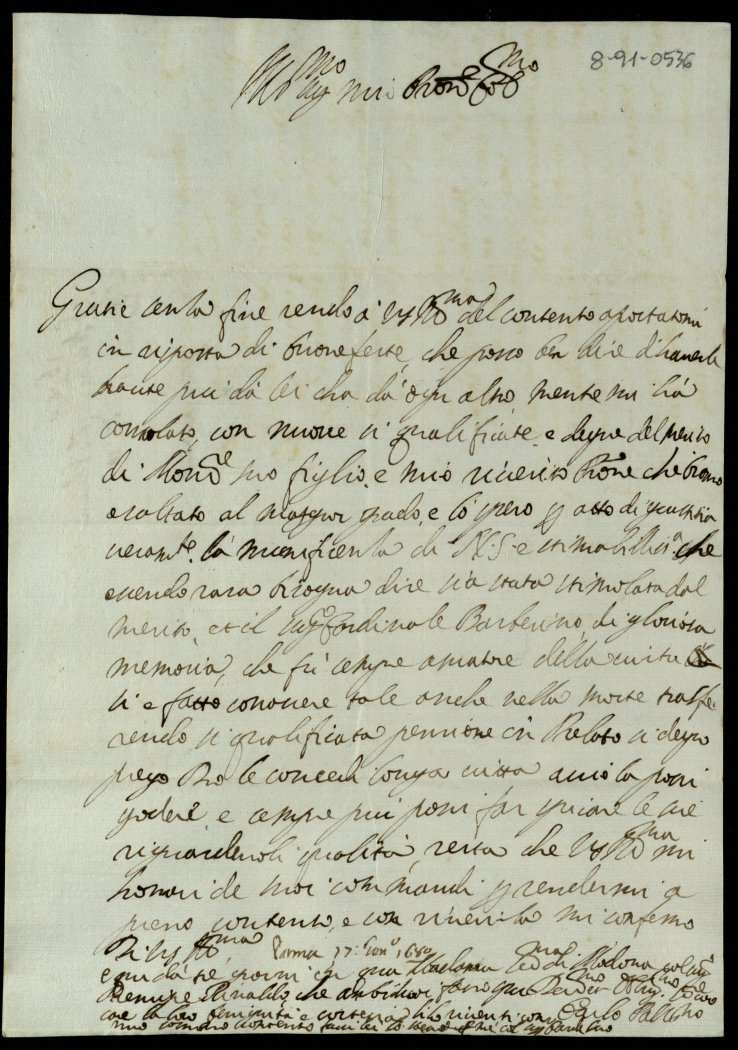 8-91-0536
Ill.mo Sig.r mio Pron.e Col.mo
Grazie senza fine rendo à VS Ill.ma del contento aportatomi
in risposta di buone feste, che posso ben dire d'haverle
haute più dà lei che dà ogni altro mentre mi hà
consolato, con nuove si qualificate e degne del merito
di Mons.re suo figlio, e mio riverito Prone che bramo
esaltato al maggior grado, e lo spero p atto di giustitia
veram.te la munificienza di N.S. e stimabiliss.a che
essendo rara bisogna dire sia stata stimolata dal
merito, et il Sig.r Cardinale Barberino, di gloriosa
memoria, che fù sempre amatore della virtu
si e fatto conoscere tale anche nella morte trasfe-
rendo si qualificata pensione in Prelato si degno
prego Dio le conceda longa vitta acciò la possi
godere e sempre più possi far spicare le sue
riguardevoli qualità, resta che VS Ill.ma mi
honori de suoi commandi p rendermi a
pieno contento, e con riverirla mi confermo
Di VS Ill.ma Parma 17: Gen.o 1680
e midà tre giorni in qua Madama Ser.ma di Modona col Sig.r
Prencipe Rinaldo, che ambidue sono
con la loro benignità e cortesia
Carlo